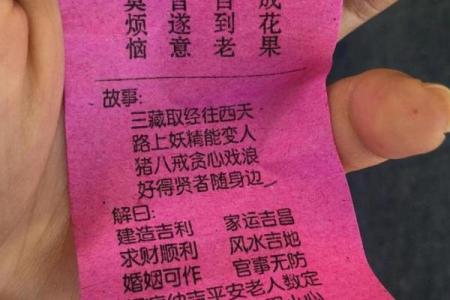 花果
到老
遂意
烦恼
故事:
三藏取经往西天
路上妖精能变人
猪八戒贪心戏浪
好得贤者随身边
解曰:
建造吉利 家运吉昌
求财顺利 风水吉地
婚姻可作 官事无防
纳吉平安老人数定